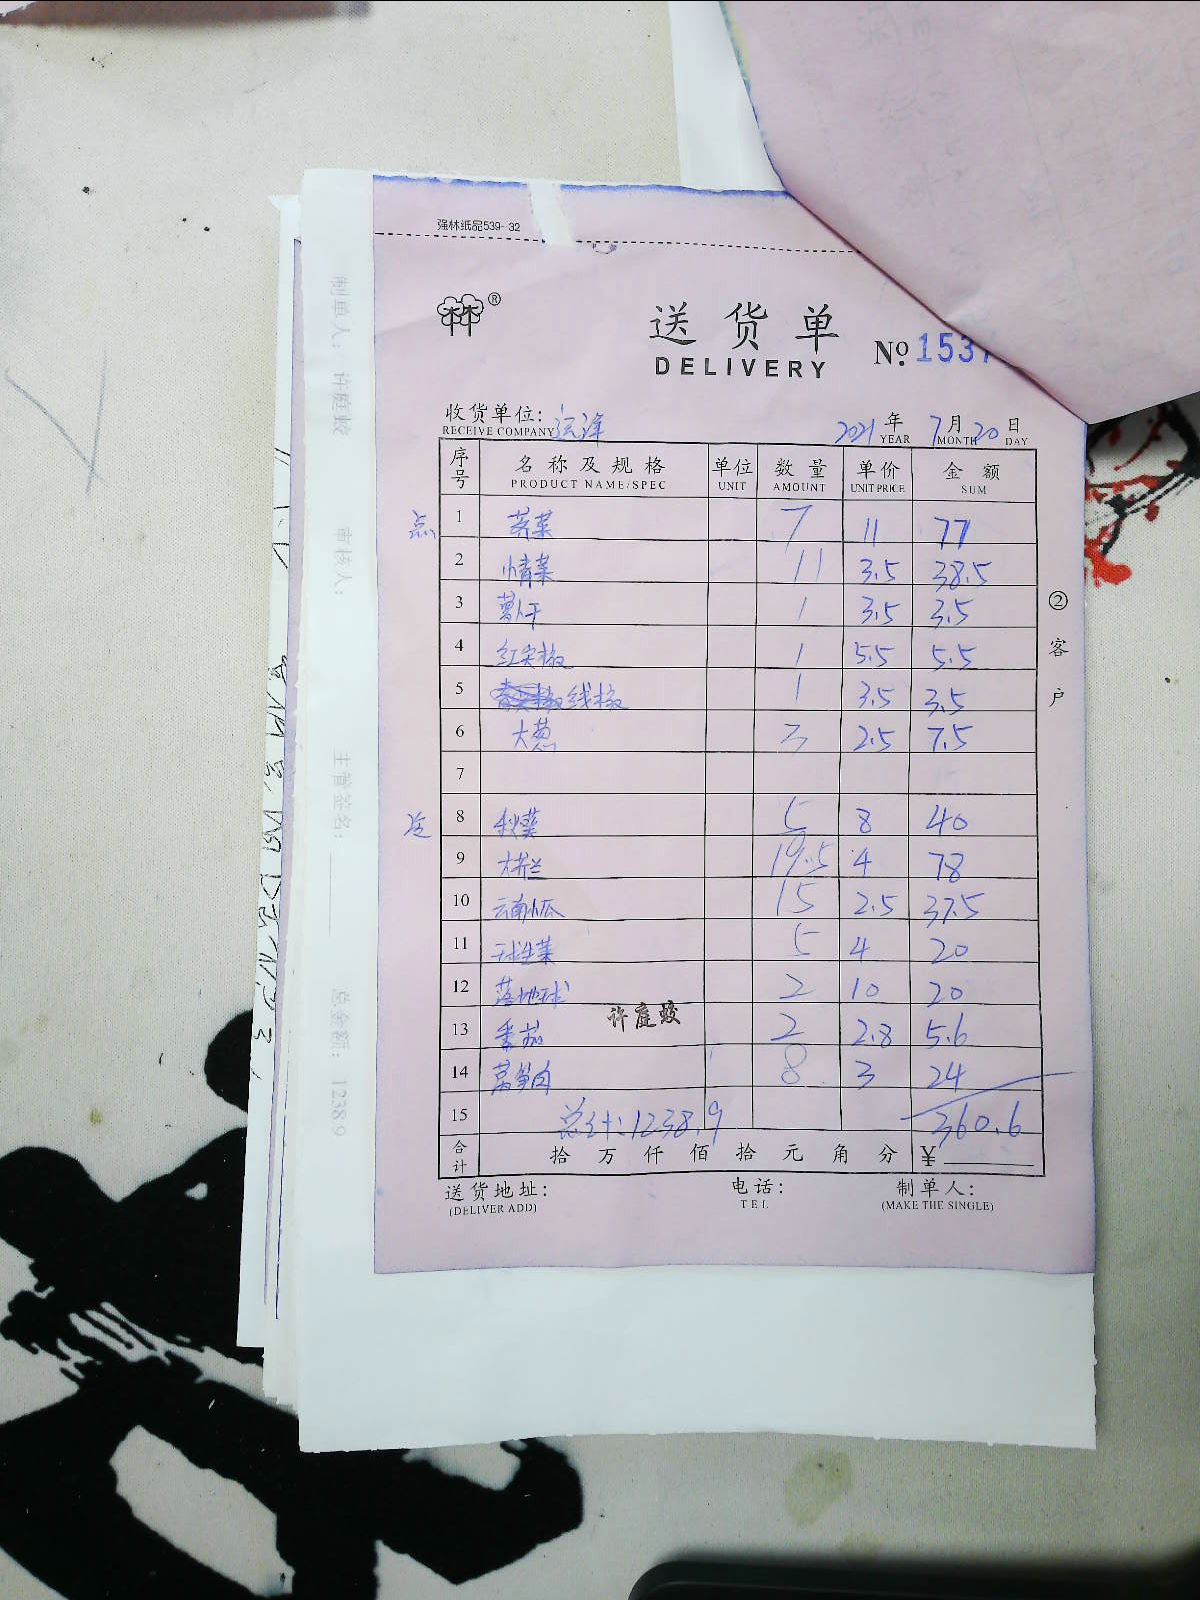 强林纸品539-32
林®
送货单
DELIVERY
№ 1537
收货单位:
RECEIVE COMPANY
2021 年 7 月 20 日
YEAR MONTH DAY
序号 名称及规格 单位 数量 单价 金额
PRODUCT NAME/SPEC UNIT AMOUNT UNIT PRICE SUM
点 1 7 11 77
2 小青菜 11 3.5 38.5
3 萝卜干 1 3.5 3.5
4 红尖椒 1 5.5 5.5
5 线椒 1 3.5 3.5
6 大葱 3 2.5 7.5
7
8 秋葵 5 8 40
9 19.5 4 78
10 云南小瓜 15 2.5 37.5
11 球生菜 5 4 20
12 落地球 2 10 20
许庭蛟
13 番茄 2 2.8 5.6
14 莴笋肉 8 3 24
15 总计:1238.9 360.6
合计 拾万仟佰拾元角分 ¥
送货地址: 电话: 制单人:
(DELIVER ADD) TEL (MAKE THE SINGLE)
②客户
制单人: 许庭蛟 审核人: 主管签名: 总金额: 1238.9